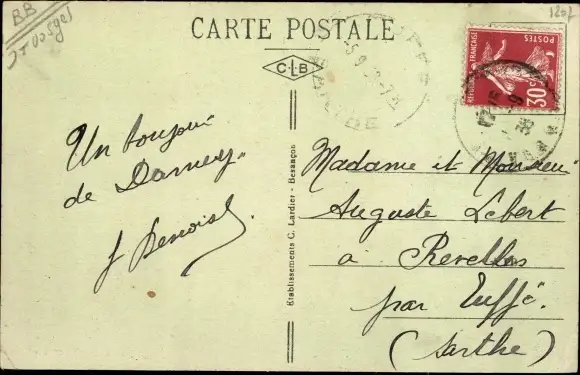 BB
Vosges
1207
CARTE POSTALE
CLB
POSTES
REPUBLIQUE FRANÇAISE
30c
Un bonjour
de Darney
J Benoist
Etablissements C. Lardier - Besançon
Madame et Monsieur
Auguste Lebert
à
par Tuffé
(Sarthe)